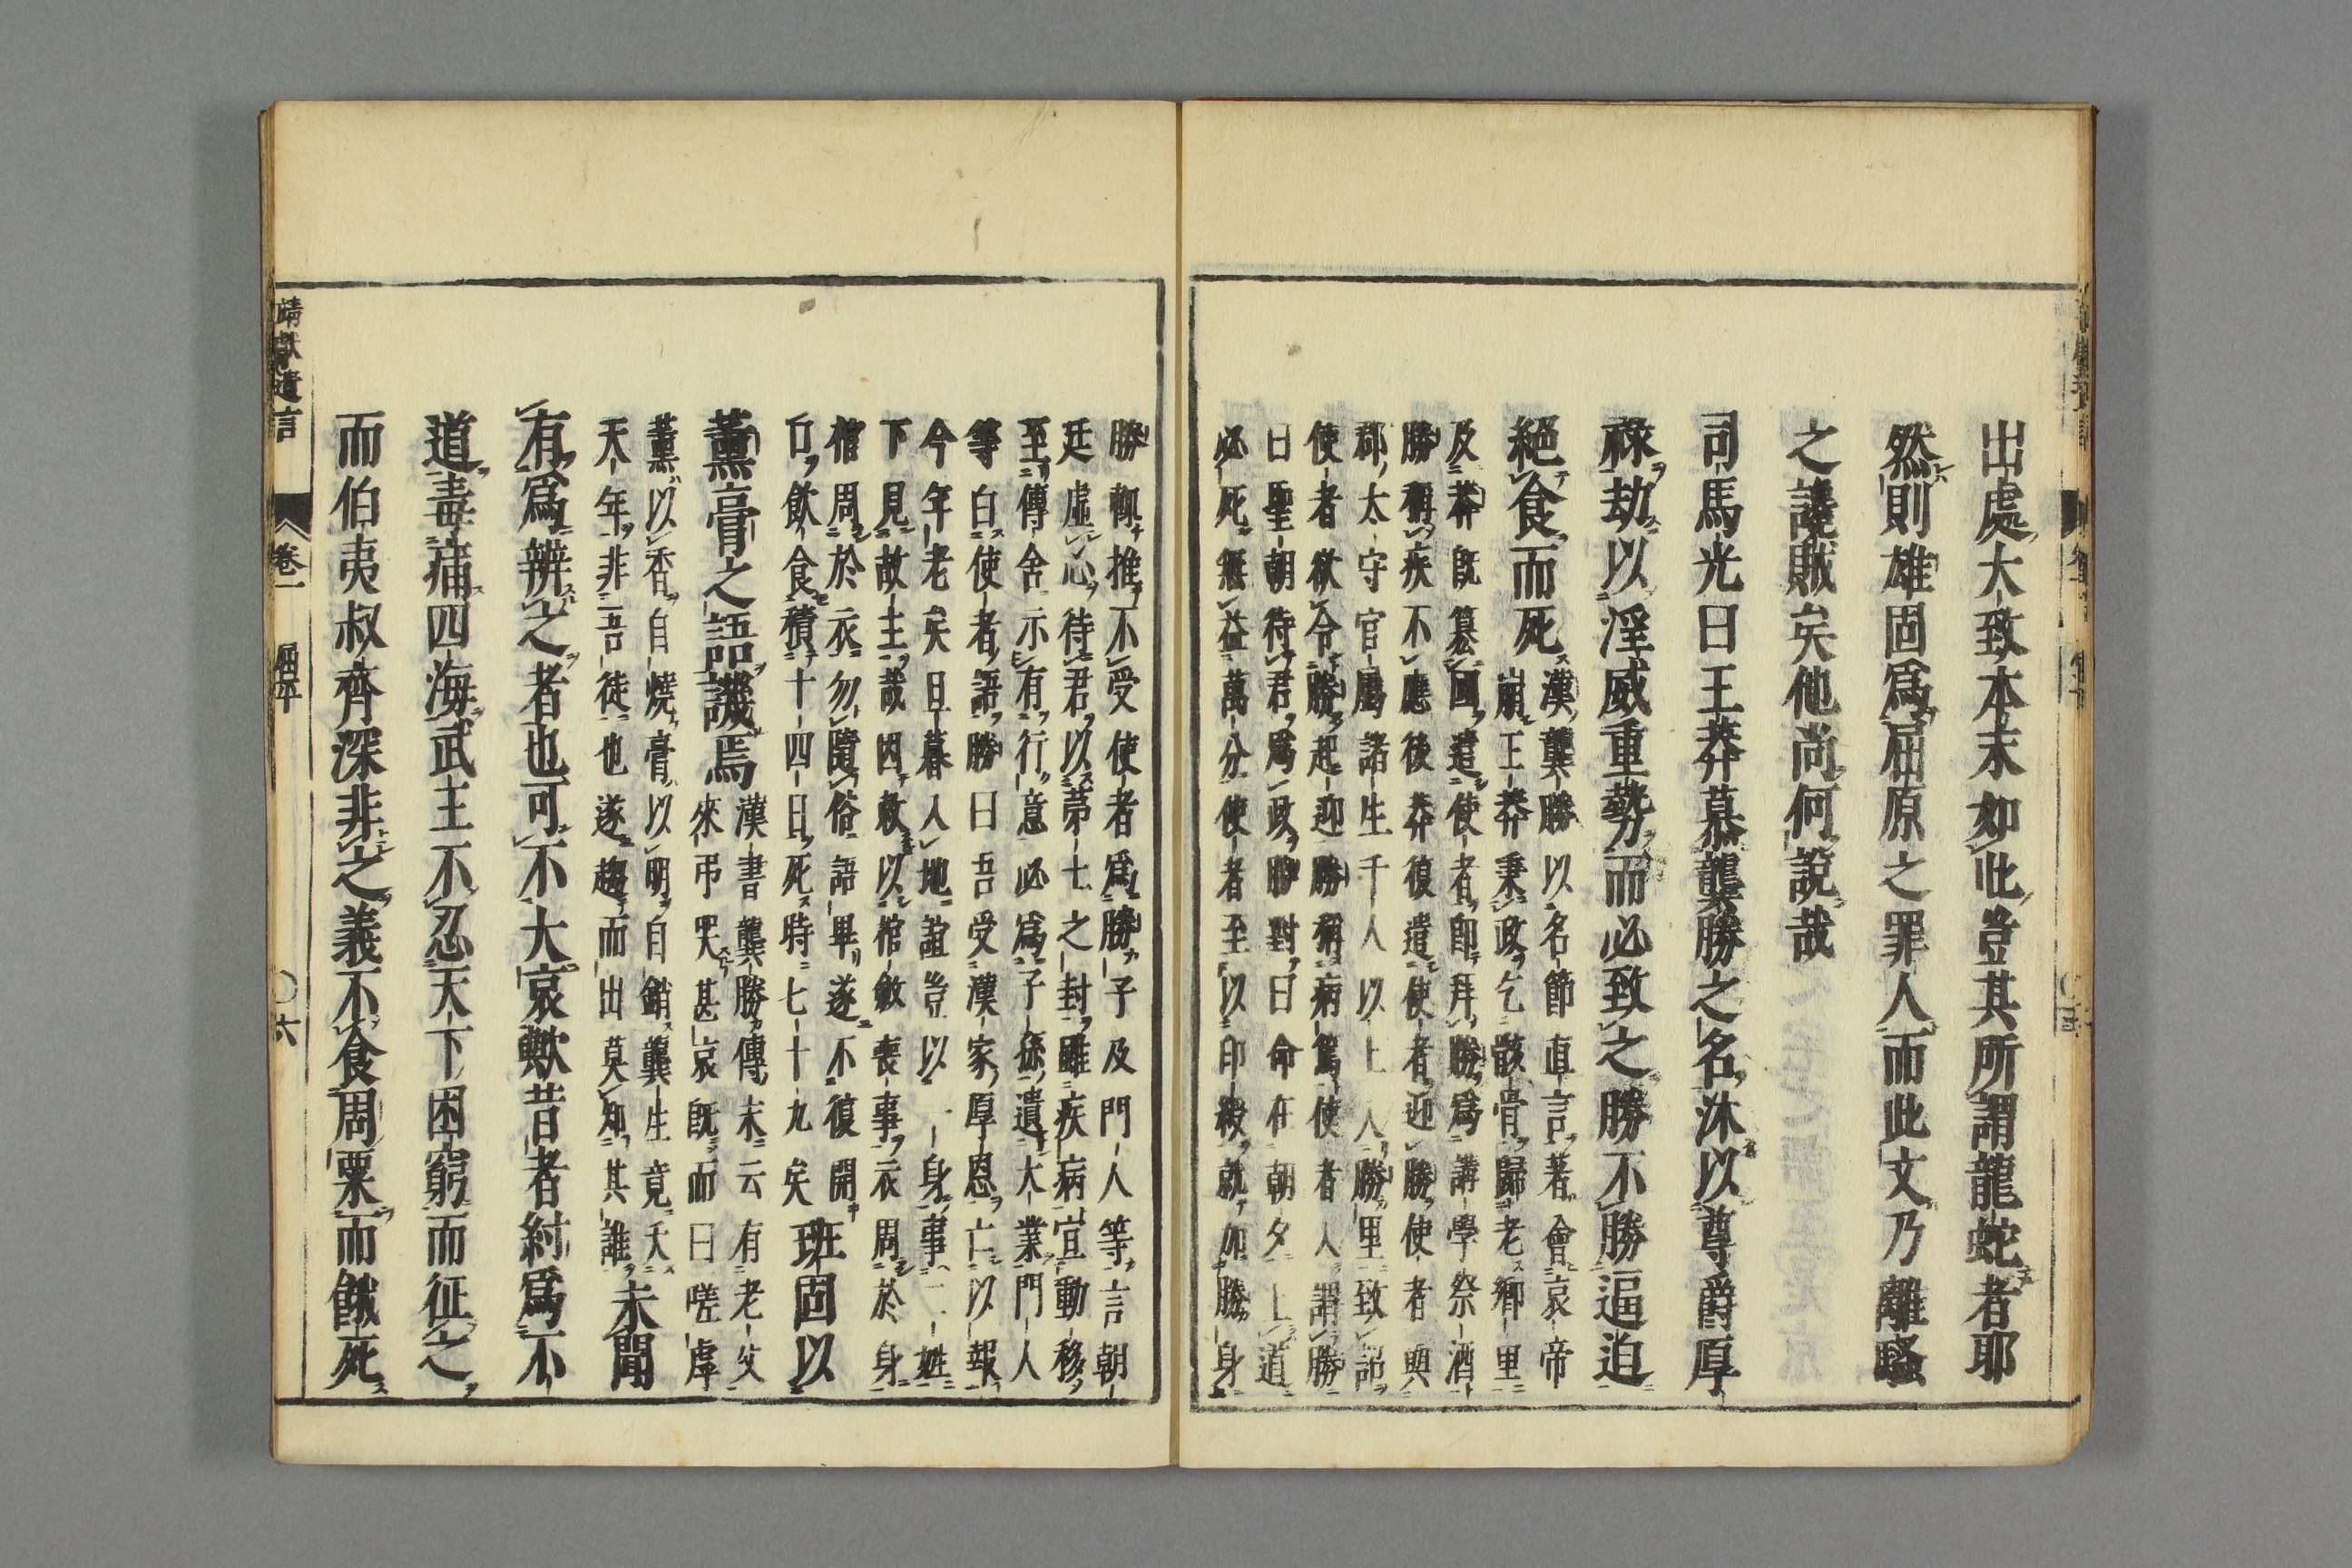 出處大致本末如此豈其所謂龍蛇者耶
然則雄固爲屈原之罪人而此文乃離騷
之讒賊矣他尚何說哉
司馬光曰王莽慕龔勝之名沐以尊爵厚
祿劫以淫威重勢而必致之勝不勝逼迫
絕食而死
漢龔勝以名節直言著會哀帝
崩王莽秉政乞骸骨歸老鄉里
及莽旣篡國遣使者卽拜勝爲講學祭酒
勝稱疾不應後莽復遣使者迎勝使者與
郡太守官屬諸生千人以上入勝里致詔
使者欲令勝起迎勝稱病篤使者入謂勝
曰聖朝待君爲政勝對曰命在朝夕上道
必死無益萬分使者至以印綬就加勝身
勝輒推不受使者爲勝子及門人等言朝
廷虛心待君以茅土之封雖疾病宜動移
至傳舍示有行意必爲子孫遺大業門人
等白使者語勝曰吾受漢家厚恩亡以報
今年老矣旦暮入地誼豈以一身事二姓
下見故主哉因敕以棺斂喪事衣周於身
棺周於衣勿隨俗語畢遂不復開
口飲食積十四日死時七十九矣
班固以
薰膏之語譏焉
漢書龔勝傳末云有老父
來弔哭甚哀旣而曰嗟虖
薰以香自燒膏以明自銷龔生竟夭
天年非吾徒也遂趨而出莫知其誰
未聞
有爲辨之者也可不大哀歟昔者紂爲不
道毒痛四海武王不忍天下困窮而征之
而伯夷叔齊深非之義不食周粟而餓死
靖獻遺言
卷一
屈平
〇六